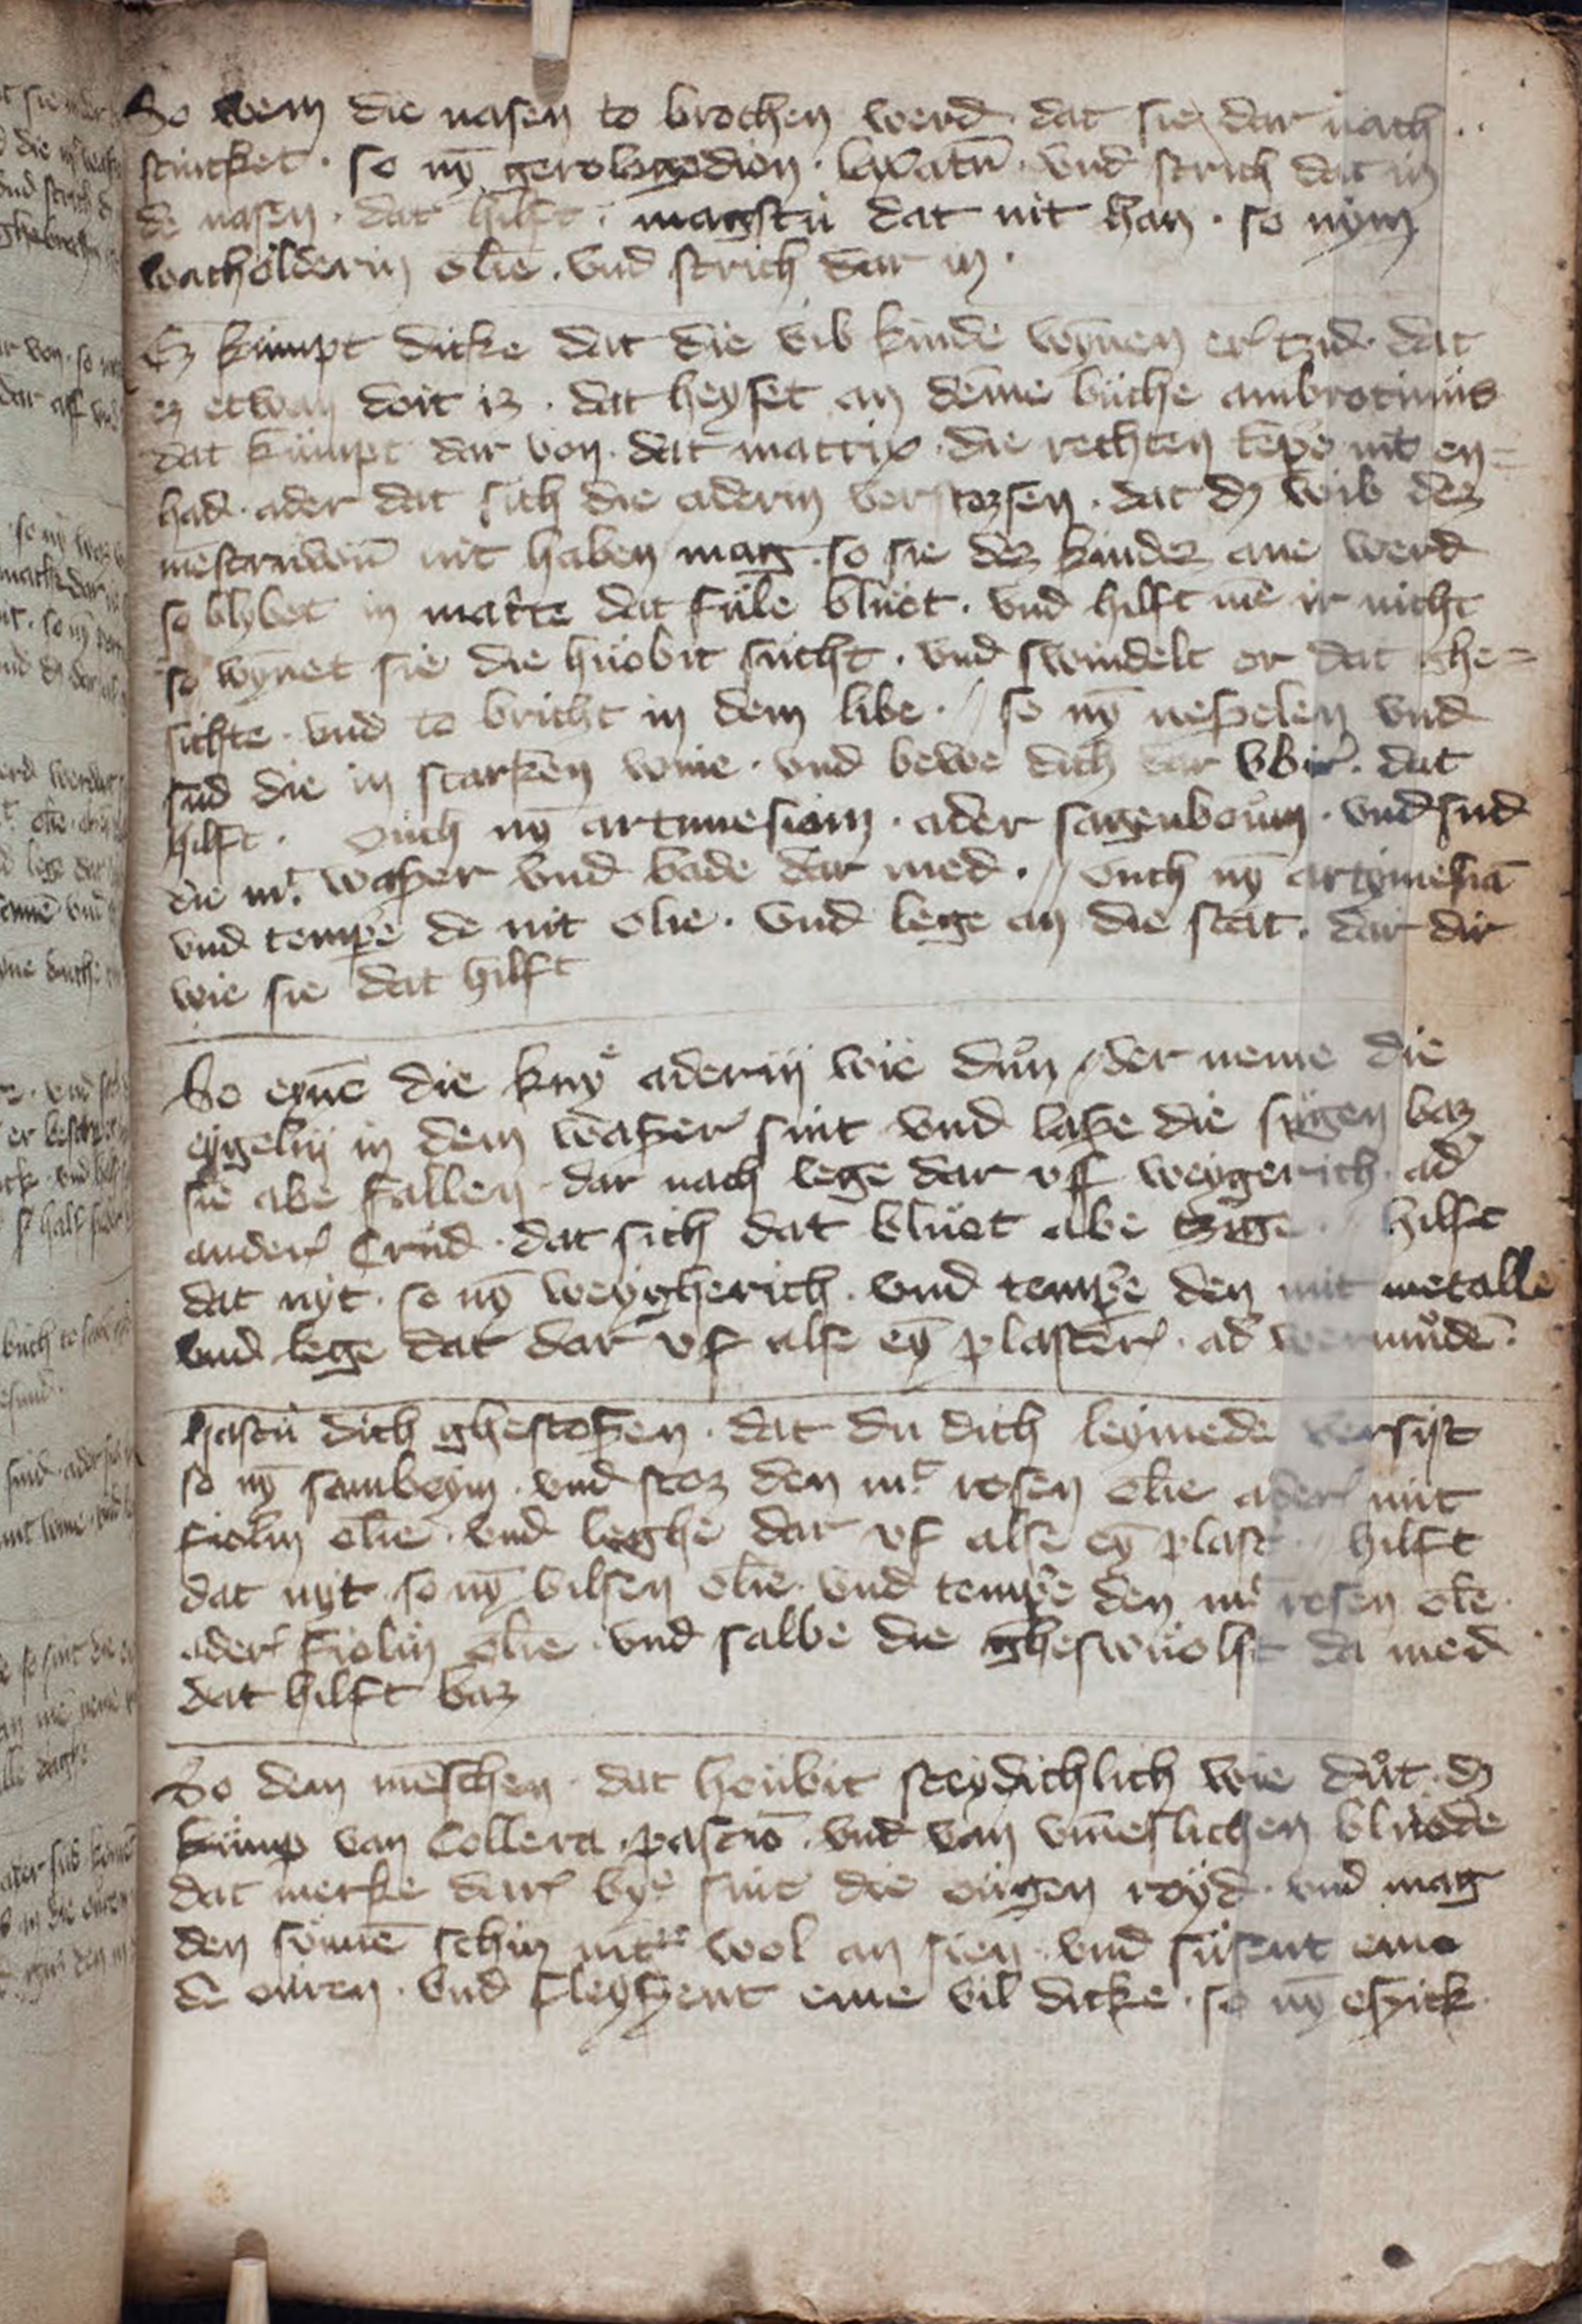 So wem die nasen to brochen werd dat sie dar nach
stincket · so nȳ gerologodion · laxatū · vnd strich dat in
de nasen · dat hilft · magstu dat nit han · so nym
wacholderin olie · vnd strich dar in ·
Ez kumpt dicke dat die wib kinde wȳnen er tzid · dat
ez etwan doit iz · dat heyset an deme buche ambrocinius
dat kumpt dar von · dat mattrix · die rechten tēpe nit en=
had · ader dat sich die aderin verstozsen · dat dz wib dez
mēstruūm nit haben mag · so sie dez kindez ane werd
so blybet in matte dat fule bluot · vnd hilft mē ir nicht
so wȳnet sie die huobit sucht · vnd swindelt er dat ghe=
sichte · vnd to bricht in dem libe · // so nȳ nespelen vnd
sud die in starken wine · vnd bewe dich dar vbir · dat
hilft · Ouch nȳ artimesiam · ader sagenboum · vnd sud
die mt waßer vnd bade dar med · // Ouch nȳ artymesiā
vnd tempe de mit olie · vnd lege an die stat · dar dir
wie sie dat hilft
So eynē die kny aderin wie dun / der neme die
eygelin in dem waßer sint vnd laße die sugen baz
sie abe fallen · dar nach lege dar vff weygerich · ad
ander crud · dat sich dat bluot abe tzige // hilft
dat nyt · so nȳ weygherich · vnd tempe den mit metalle
vnd lege dat dar vf alse eȳ plaster · ad wermudē ·
hastu dich ghestoßen · dat du dich leymede versist
so nȳ samboym · vnd stoz den mt rosen olie ader mit
fiolin olie · vnd leghe dar vf alse eȳ plast // hilft
dat nyt · so nȳ bilsen olie · vnd tempe den mt rosen olie ·
ader fiolin olie · vnd salbe die gheswuolst da med
dat hilft baz
So dem mēschen · dat houbit steydichlich wie dut · dz
kump van Collera · pascio · vnd van vmeslichen bluode
dat merke dar bye sint die ougen royd · vnd mag
den sonnē schin nit wol an sien · vnd susent eme
de ouren · vnd fleyßent eme vil dicke · so nȳ eppick